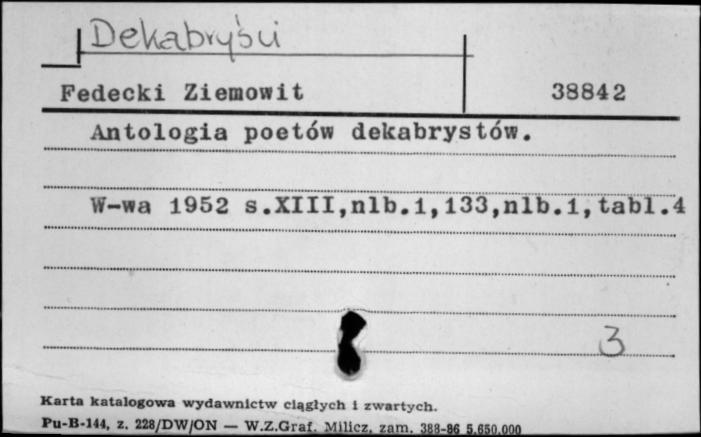 Dekabryści
Fedecki Ziemowit 38842
Antologia poetów dekabrystów.
W-wa 1952 s.XIII,nlb.1,133,nlb.1,tabl.4
3
Karta katalogowa wydawnictw ciągłych i zwartych.
Pu-B-144, z. 228/DW/ON — W.Z.Graf. Milicz, zam. 388-86 5.650.000